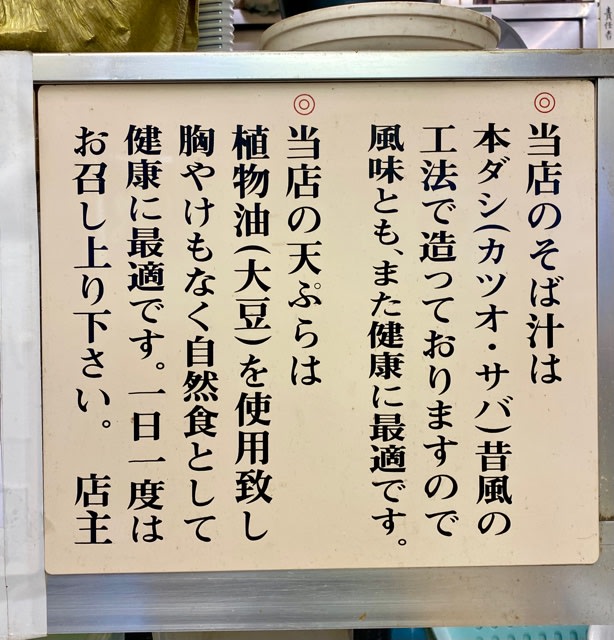 ◎当店のそば汁は
本ダシ(カツオ・サバ)昔風の
工法で造っておりますので
風味とも、また健康に最適です。
◎当店の天ぷらは
植物油(大豆)を使用致し
胸やけもなく自然食として
健康に最適です。一日一度は
お召し上り下さい。 店主
責任者